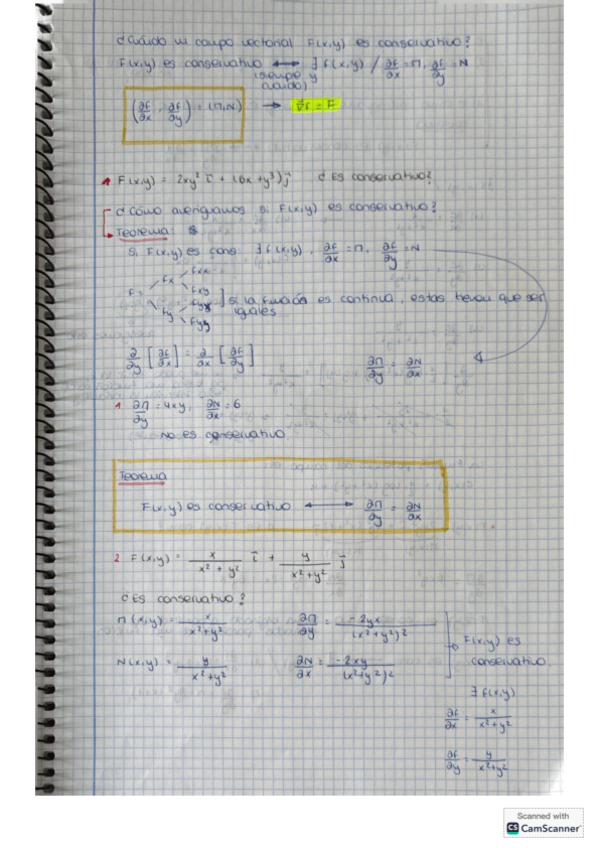 ¿Cuándo un campo vectorial F(x,y) es conservativo?
F(x,y) es conservativo ⟷ ∃ f(x,y) / ∂f/∂x = M, ∂f/∂y = N
(siempre y cuando)
(∂f/∂x, ∂f/∂y) = (M,N) → ∇f = F
1 F(x,y) = 2xy² i + (6x + y³) j ¿Es conservativo?
¿Cómo averiguamos si F(x,y) es conservativo?
Teorema:
Si F(x,y) es cons. ∃ f(x,y), ∂f/∂x = M, ∂f/∂y = N
fx fxx
fxy
f
fy fyx
fyy
Si la función es continua, estas tienen que ser
iguales
∂/∂y [∂f/∂x] = ∂/∂x [∂f/∂y] ∂M/∂y = ∂N/∂x
1 ∂M/∂y = 4xy, ∂N/∂x = 6
No es conservativo.
Teorema
F(x,y) es conservativo ⟷ ∂M/∂y = ∂N/∂x
2 F(x,y) = x/(x² + y²) i + y/(x² + y²) j
¿Es conservativo?
M(x,y) = x/(x² + y²) ∂M/∂y = -2yx/(x² + y²)²
N(x,y) = y/(x² + y²) ∂N/∂x = -2xy/(x² + y²)²
F(x,y) es
conservativo.
∃ f(x,y)
∂f/∂x = x/(x² + y²)
∂f/∂y = y/(x² + y²)
Scanned with
CS CamScanner